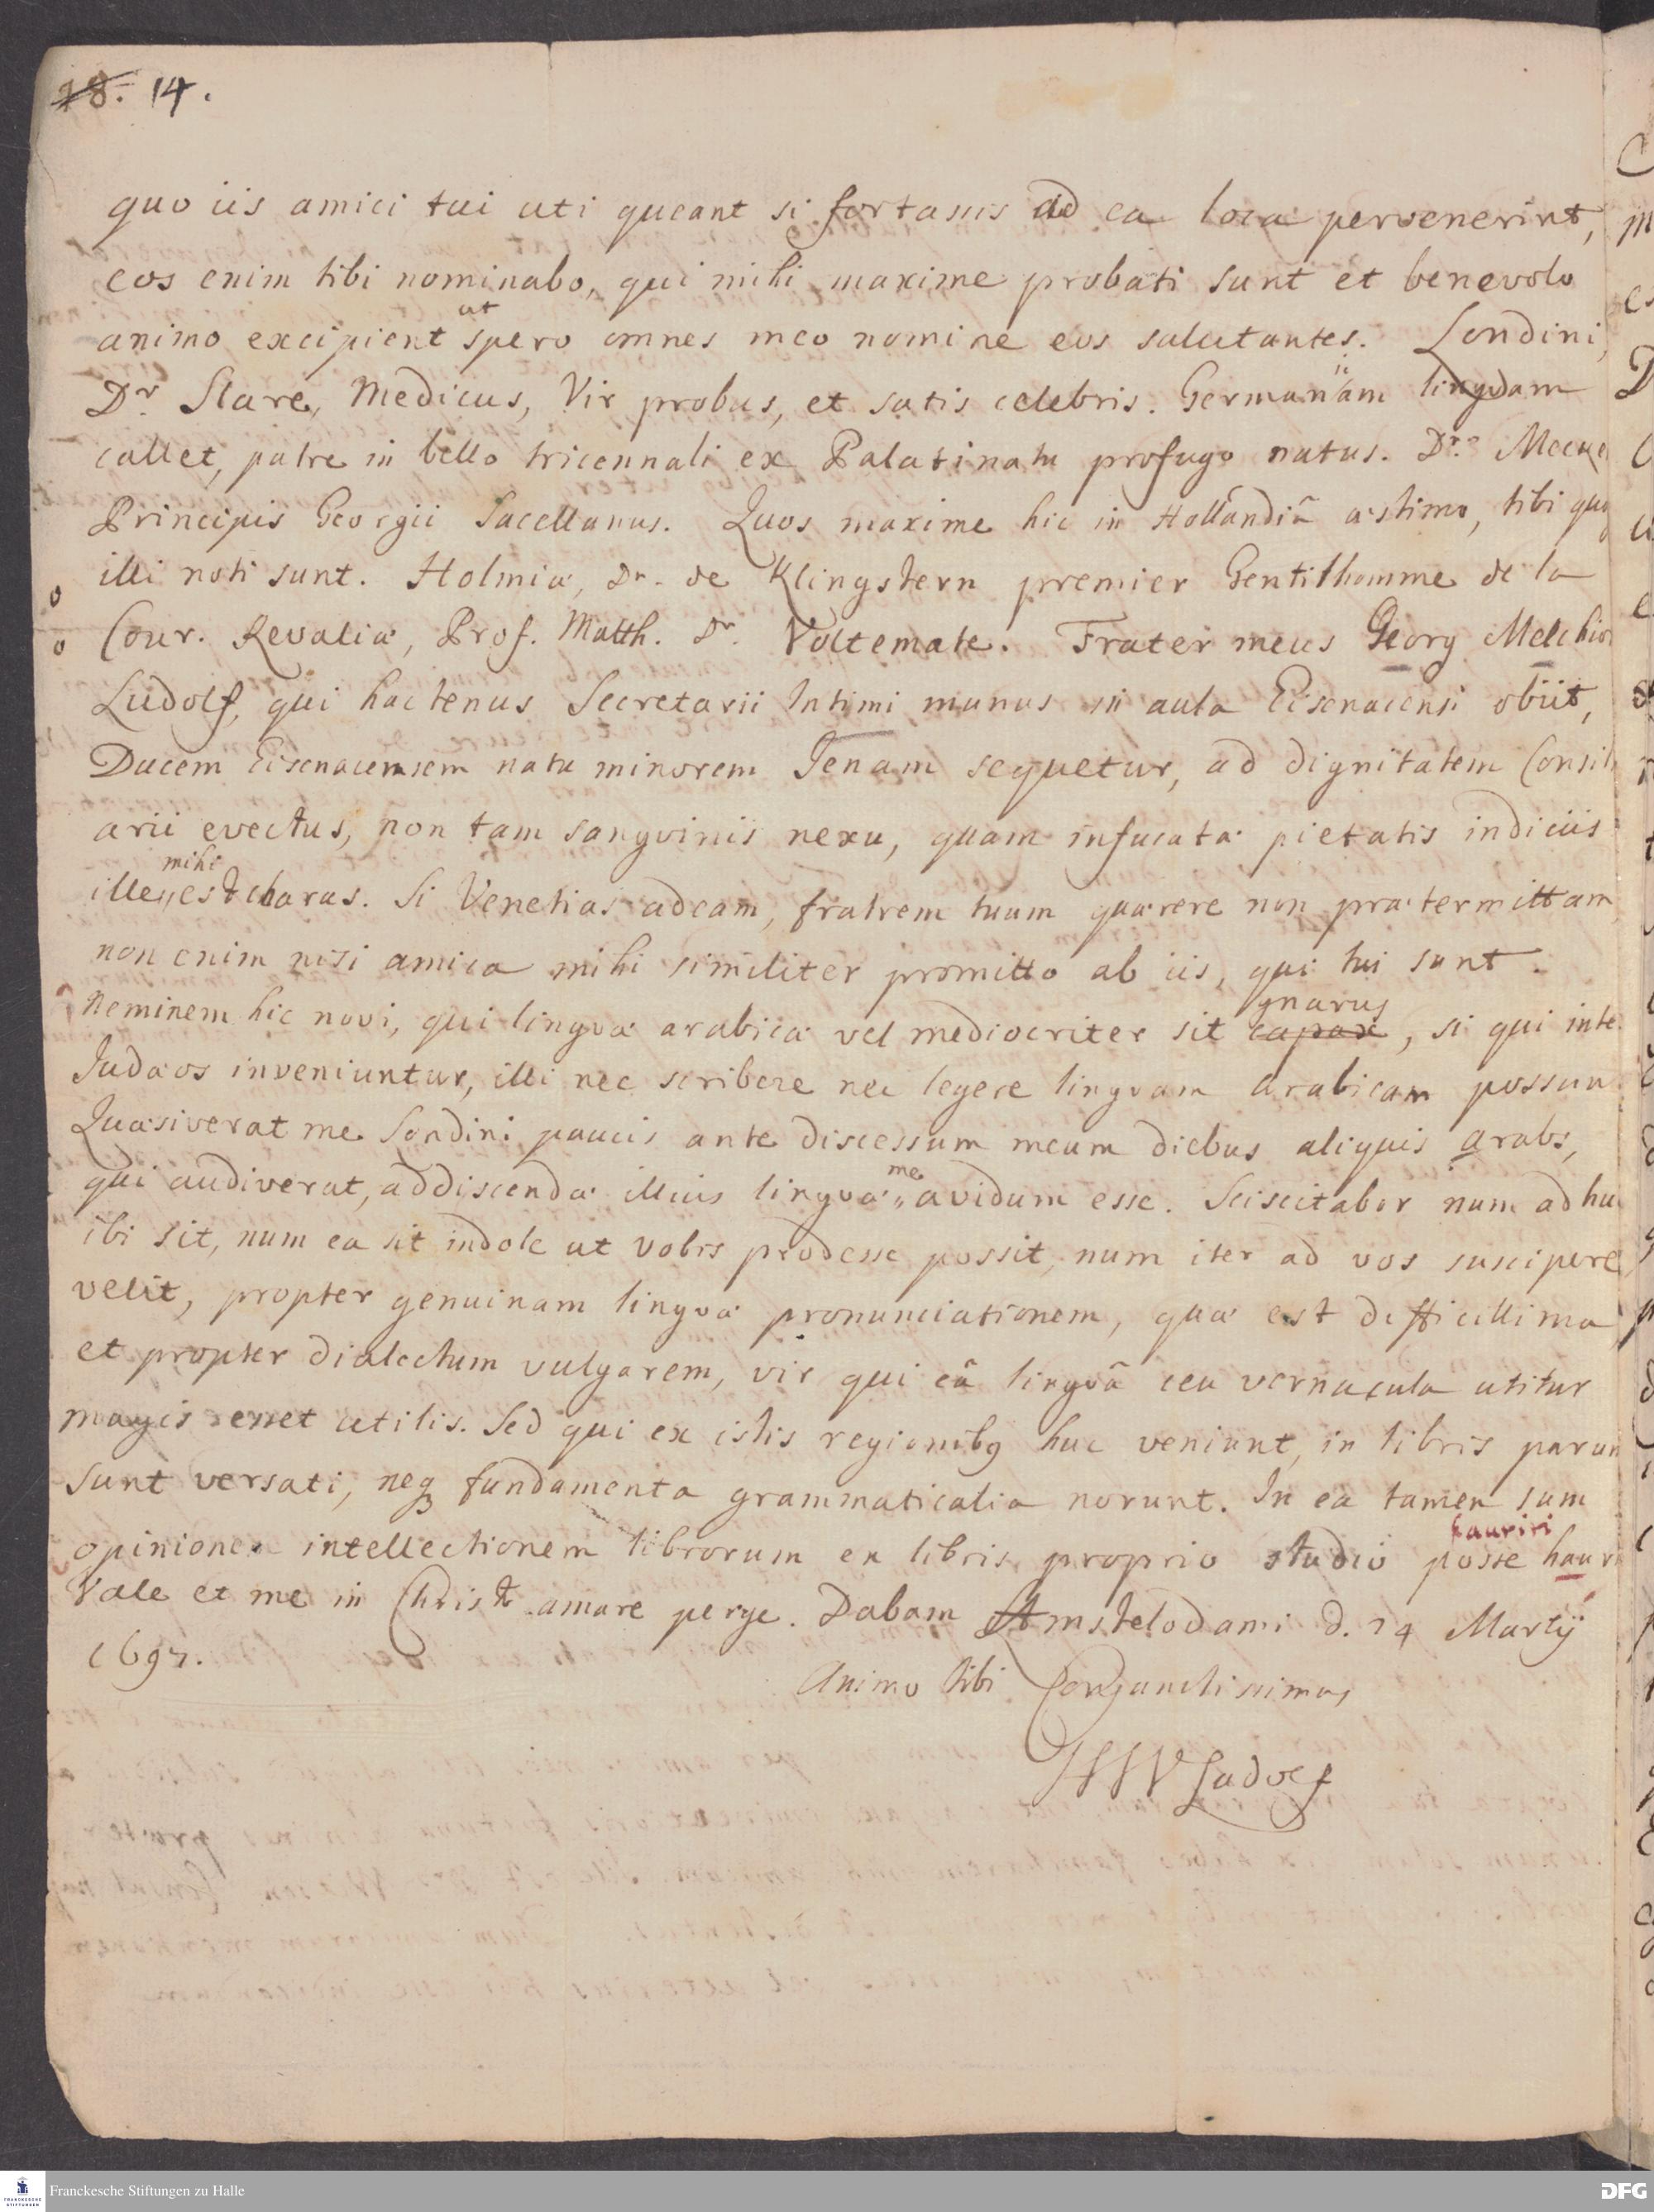 18. 14.
quo iis amici tui uti queant si fortassis ad ea loca pervenerint,
eos enim tibi nominabo, qui mihi maxime probati sunt et benevolo
animo excipient ut spero omnes meo nomine eos salutantes. Londini,
Dr. Slare, Medicus, Vir probus, et satis celebris. Germaniam lingvam
callet, patre in bello tricennali ex Palatinatu profugo natus. Dr.
Principis Georgii Sacellanus. Quos maxime hic in Hollandiâ æstimo, tibi quoq
illi noti sunt. Holmiæ, Dr. de Klingstern premier Gentilhomme de la
Cour. Revaliæ, Prof. Matth. Dr. Voltemate. Frater meus Georg Melchior
Ludolf, qui hactenus Secretarii Intimi munus in aula Eisenacensi obiit,
Ducem Eisenacensem natu minorem Jenam sequetur, ad dignitatem Consili
arii evectus, non tam sangvinis nexu, quam infucatæ pietatis indiciis
ille mihi est charus. Si Venetias adeam, fratrem tuum quærere non prætermittam
non enim nisi amica mihi similiter promitto ab iis, qui tui sunt.
Neminem hic novi, qui lingvæ arabicæ vel mediocriter sit capax gnarus, si qui inte
Judæos inveniuntur, illi nec scribere nec legere lingvam arabicam possun
Quæsiverat me Londini paucis ante discessum meum diebus aliquis arabs,
qui audiverat, addiscendæ illius lingvæ me avidum esse. Sciscitabor num adhu
ibi sit, num ea sit indole ut vobis prodesse possit, num iter ad vos suscipere
velit, propter genuinam lingvæ pronunciationem, quæ est difficillima
et propter dialectum vulgarem, vir qui eâ lingvâ ceu vernacula utitur
magis esset utilis. Sed qui ex istis regionibq huc veniunt, in libris parum
sunt versati, neq fundamenta grammaticalia norunt. In ea tamen sum
opinione intellectionem librorum ex libris proprio studio posse hauri
hauriri
Vale et me in Christo amare perge. Dabam Amstelodami d. 24 Martij
1697.
Animo tibi Conjunctissimus
HWLudolf
Franckesche Stiftungen zu Halle
FRANCKESCHE STIFTUNGEN
DFG